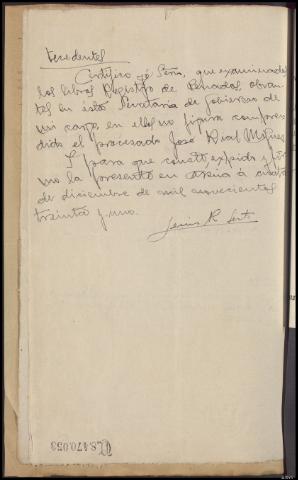 Antecedentes
Certifico yó Srio, que examinados
los libros Registro de Penados obran
tes en ésta Secretaria de gobierno de
mi cargo, en ellos no figura compren
dido el procesado José Rial
Y para que conste expido y fir
mo la presente en á
de diciembre de mil novecientos
treinta y uno.
8.470.053